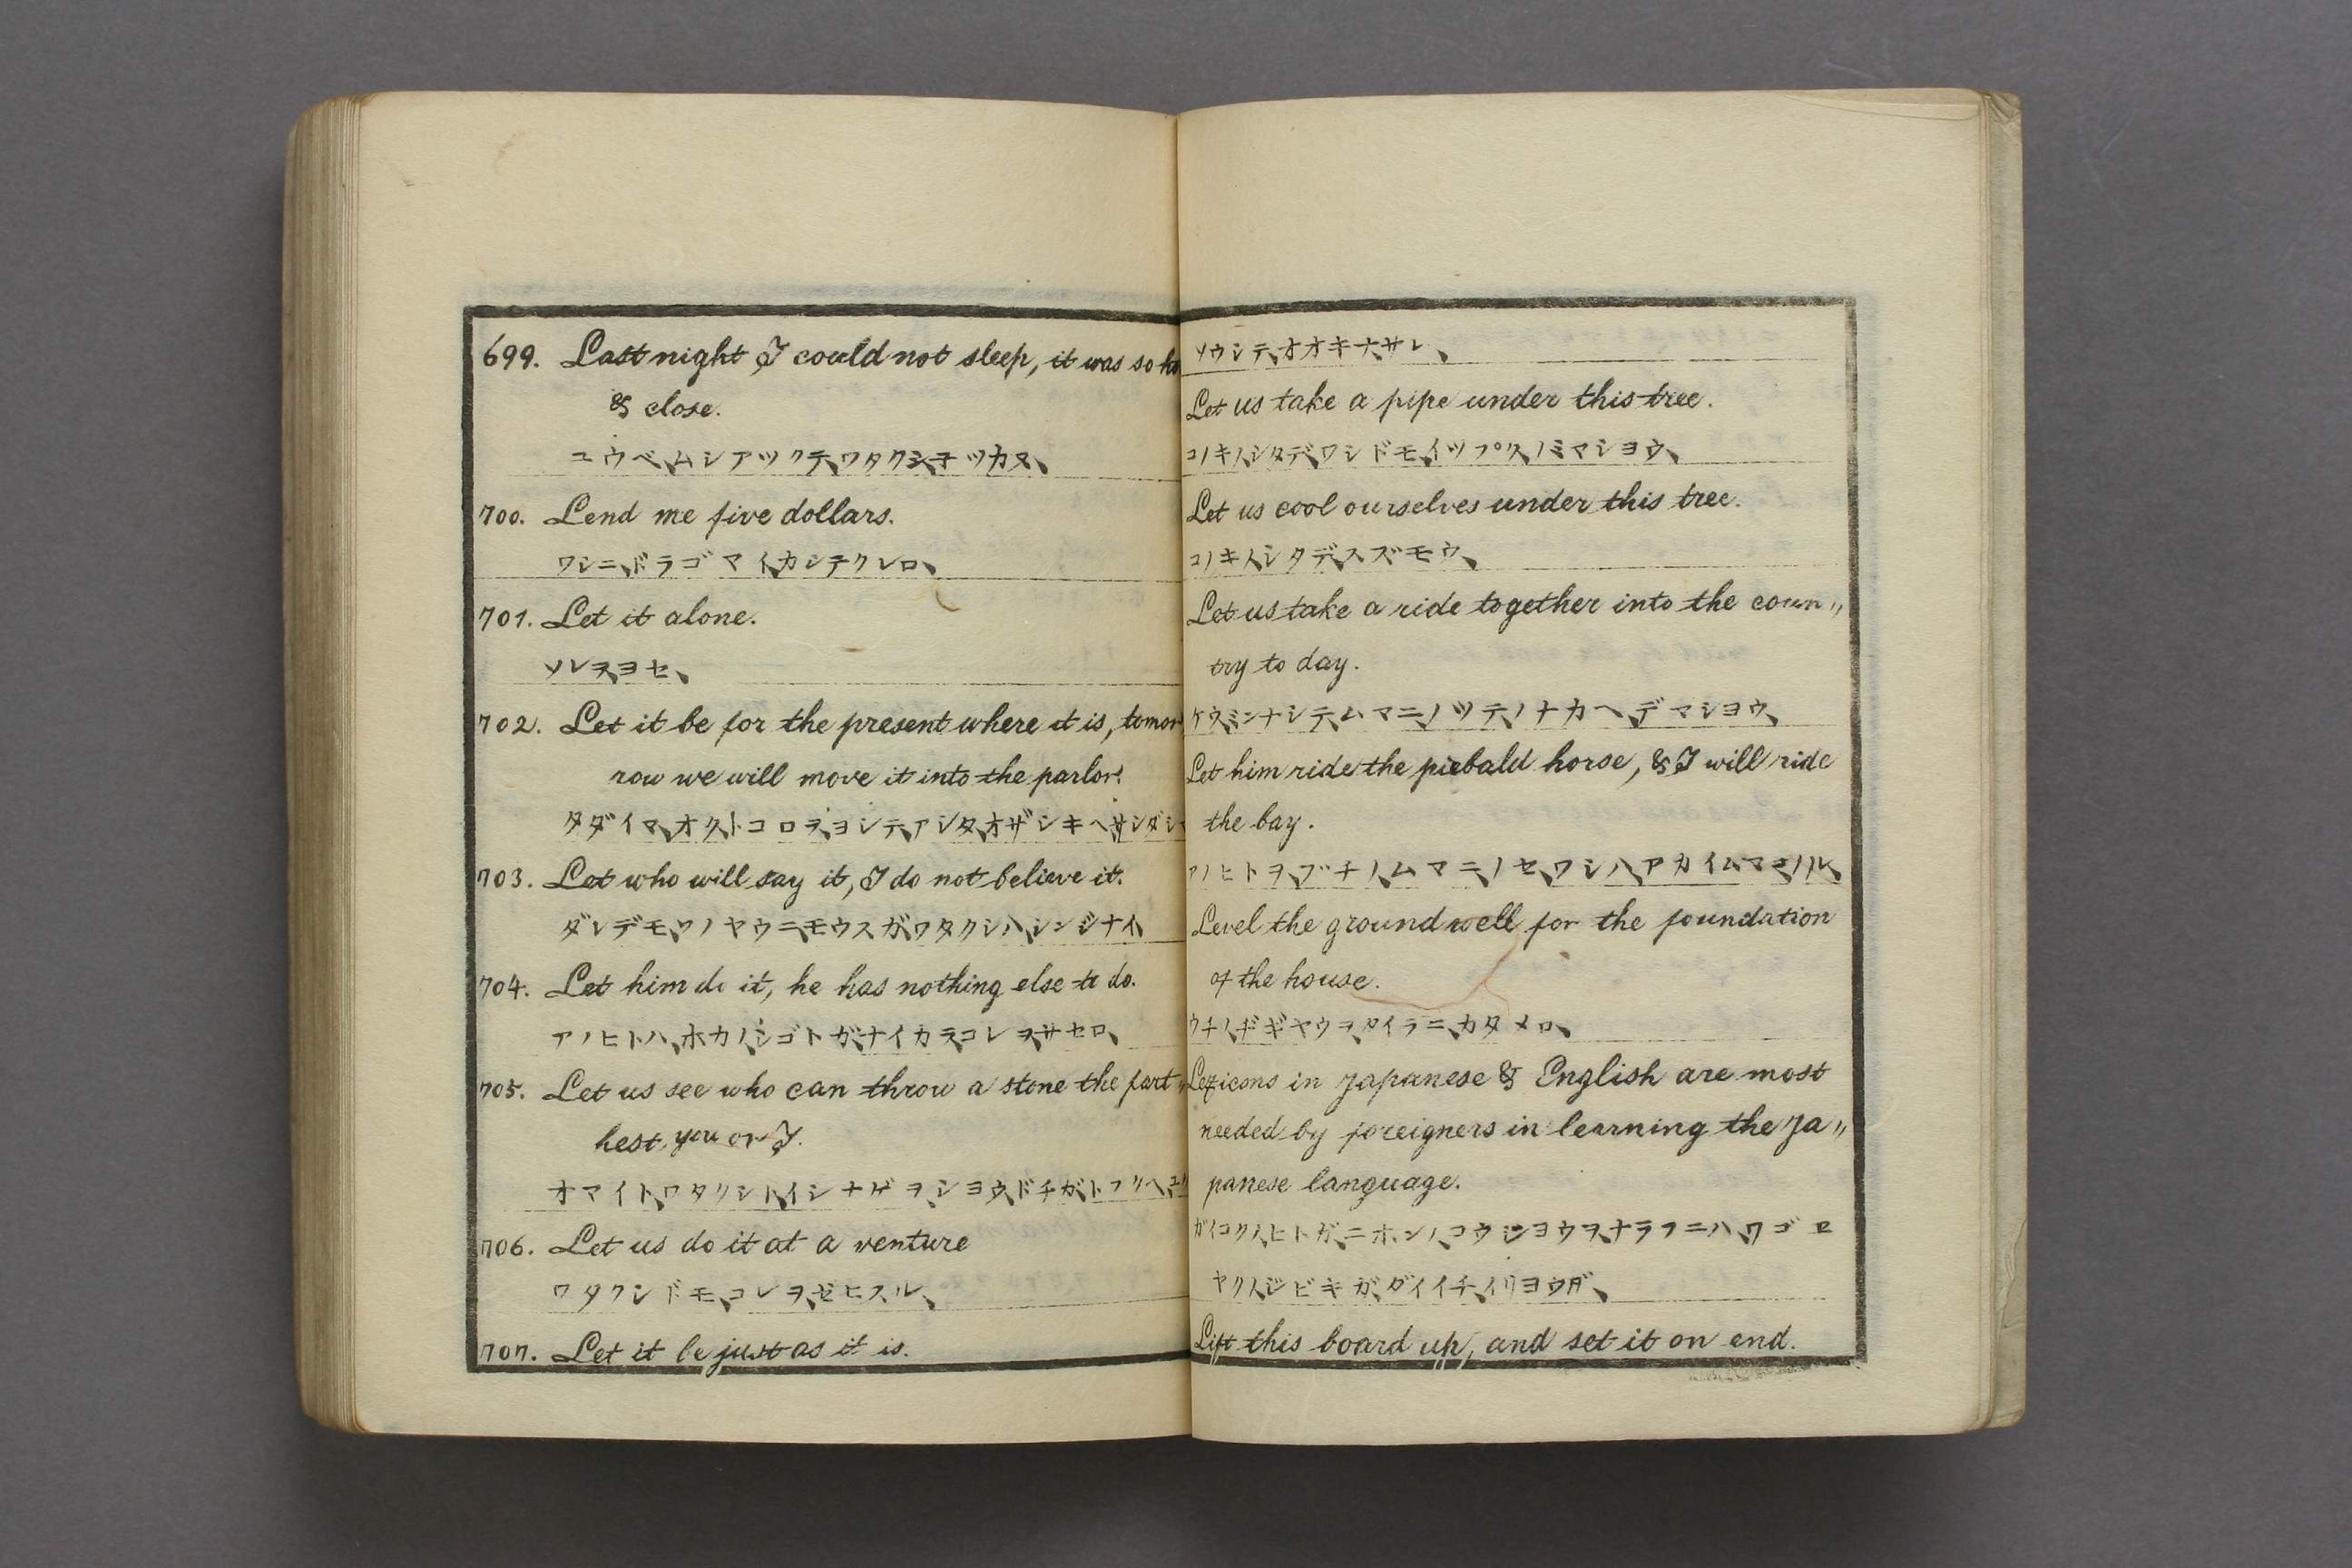 699. Last night I could not sleep, it was so
& close.
ユウベ、ムシアツクテ、ワタクシ、子ツカヌ、
700. Lend me five dollars.
ワシニ、ドラゴマイ、カシテクレロ、
701. Let it alone.
ソレヲ、ヨセ、
702. Let it be for the present where it is, tomor
row we will move it into the parlor.
タダイマ、オク、トコロヲ、ヨシテ、アシタ、オザシキヘ、
703. Let who will say it, I do not believe it.
ダレデモ、ソノヤウニ、モウスガ、ワタクシハ、シンジナイ、
704. Let him do it, he has nothing else to do.
アノヒトハ、ホカノ、シゴトガ、ナイカラ、コレヲ、サセロ、
705. Let us see who can throw a stone the fart〃
hest, you or I.
オマイト、ワタクシト、イシナゲヲ、シヨウ、ドチガ、トフクヘ、
706. Let us do it at a venture
ワタクシドモ、コレヲ、ゼヒ、スル、
707. Let it be just as it is.
ソウシテ、オオキ、ナサレ、
Let us take a pipe under this tree.
コノキノ、シタデ、ワシドモ、イツプク、ノミマシヨウ、
Let us cool ourselves under this tree.
コノキノ、シタデ、スズモウ、
Let us take a ride together into the coun〃
try to day.
ケウ、ミンナシテ、ムマニ、ノツテ、ノナカヘ、デマシヨウ、
Let him ride the piebald horse, & I will ride
the bay.
アノヒトヲ、ブチノ、ムマニ、ノセ、ワシハ、アカイムマニ、ノル、
Level the ground well for the foundation
of the house.
ウチノ、ヂギヤウヲ、タイラニ、カタメロ、
Lexicons in Japanese & English are most
needed by foreigners in learning the Ja〃
panese language.
ガイコクノ、ヒトガ、ニホンノ、コウジヨウヲ、ナラフニハ、ワゴヱ
ヤクノ、ジビキガ、ダイイチ、イリヨウダ、
Lift this board up, and set it on end.